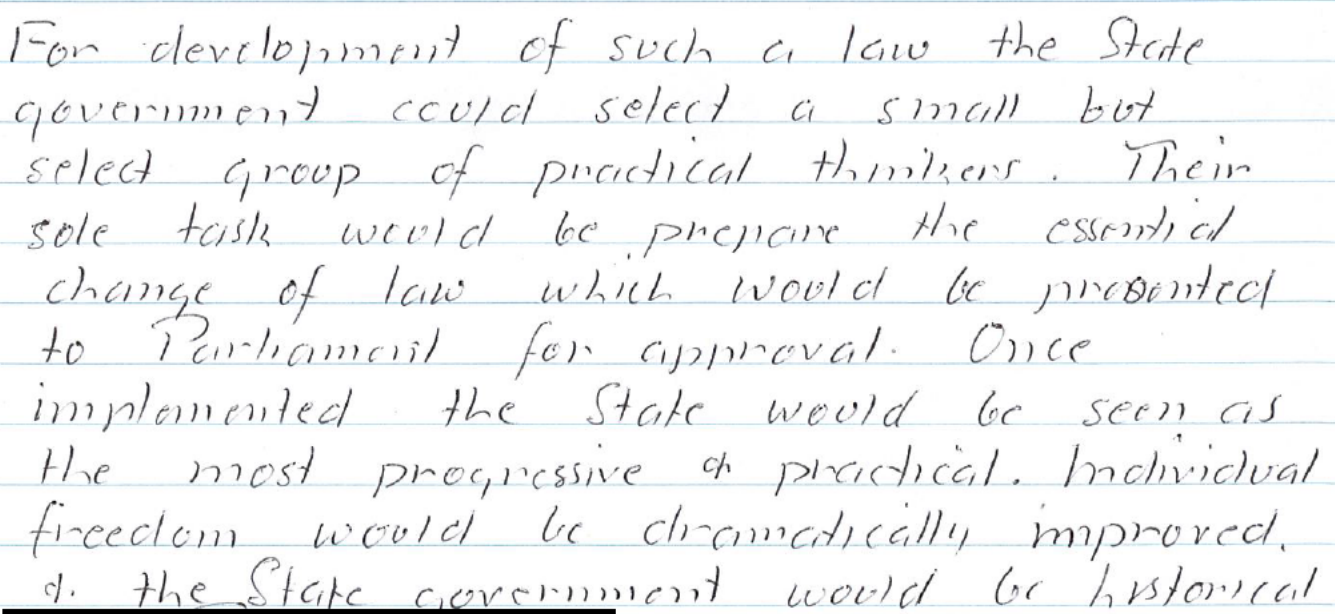 For development of such a law the State
government could select a small but
select group of practical thinkers. Their
sole task would be prepare the essential
change of law which would be presented
to Parliament for approval. Once
implemented the State would be seen as
the most progressive & practical. Individual
freedom would be dramatically improved.
&. the State government would be historical